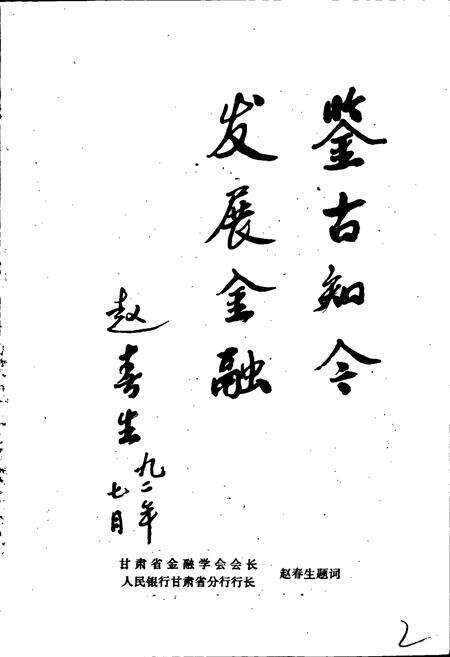 鉴古知今
发展金融
赵春生
九二年
七月
甘肃省金融学会会长
人民银行甘肃省分行行长
赵春生题词
2